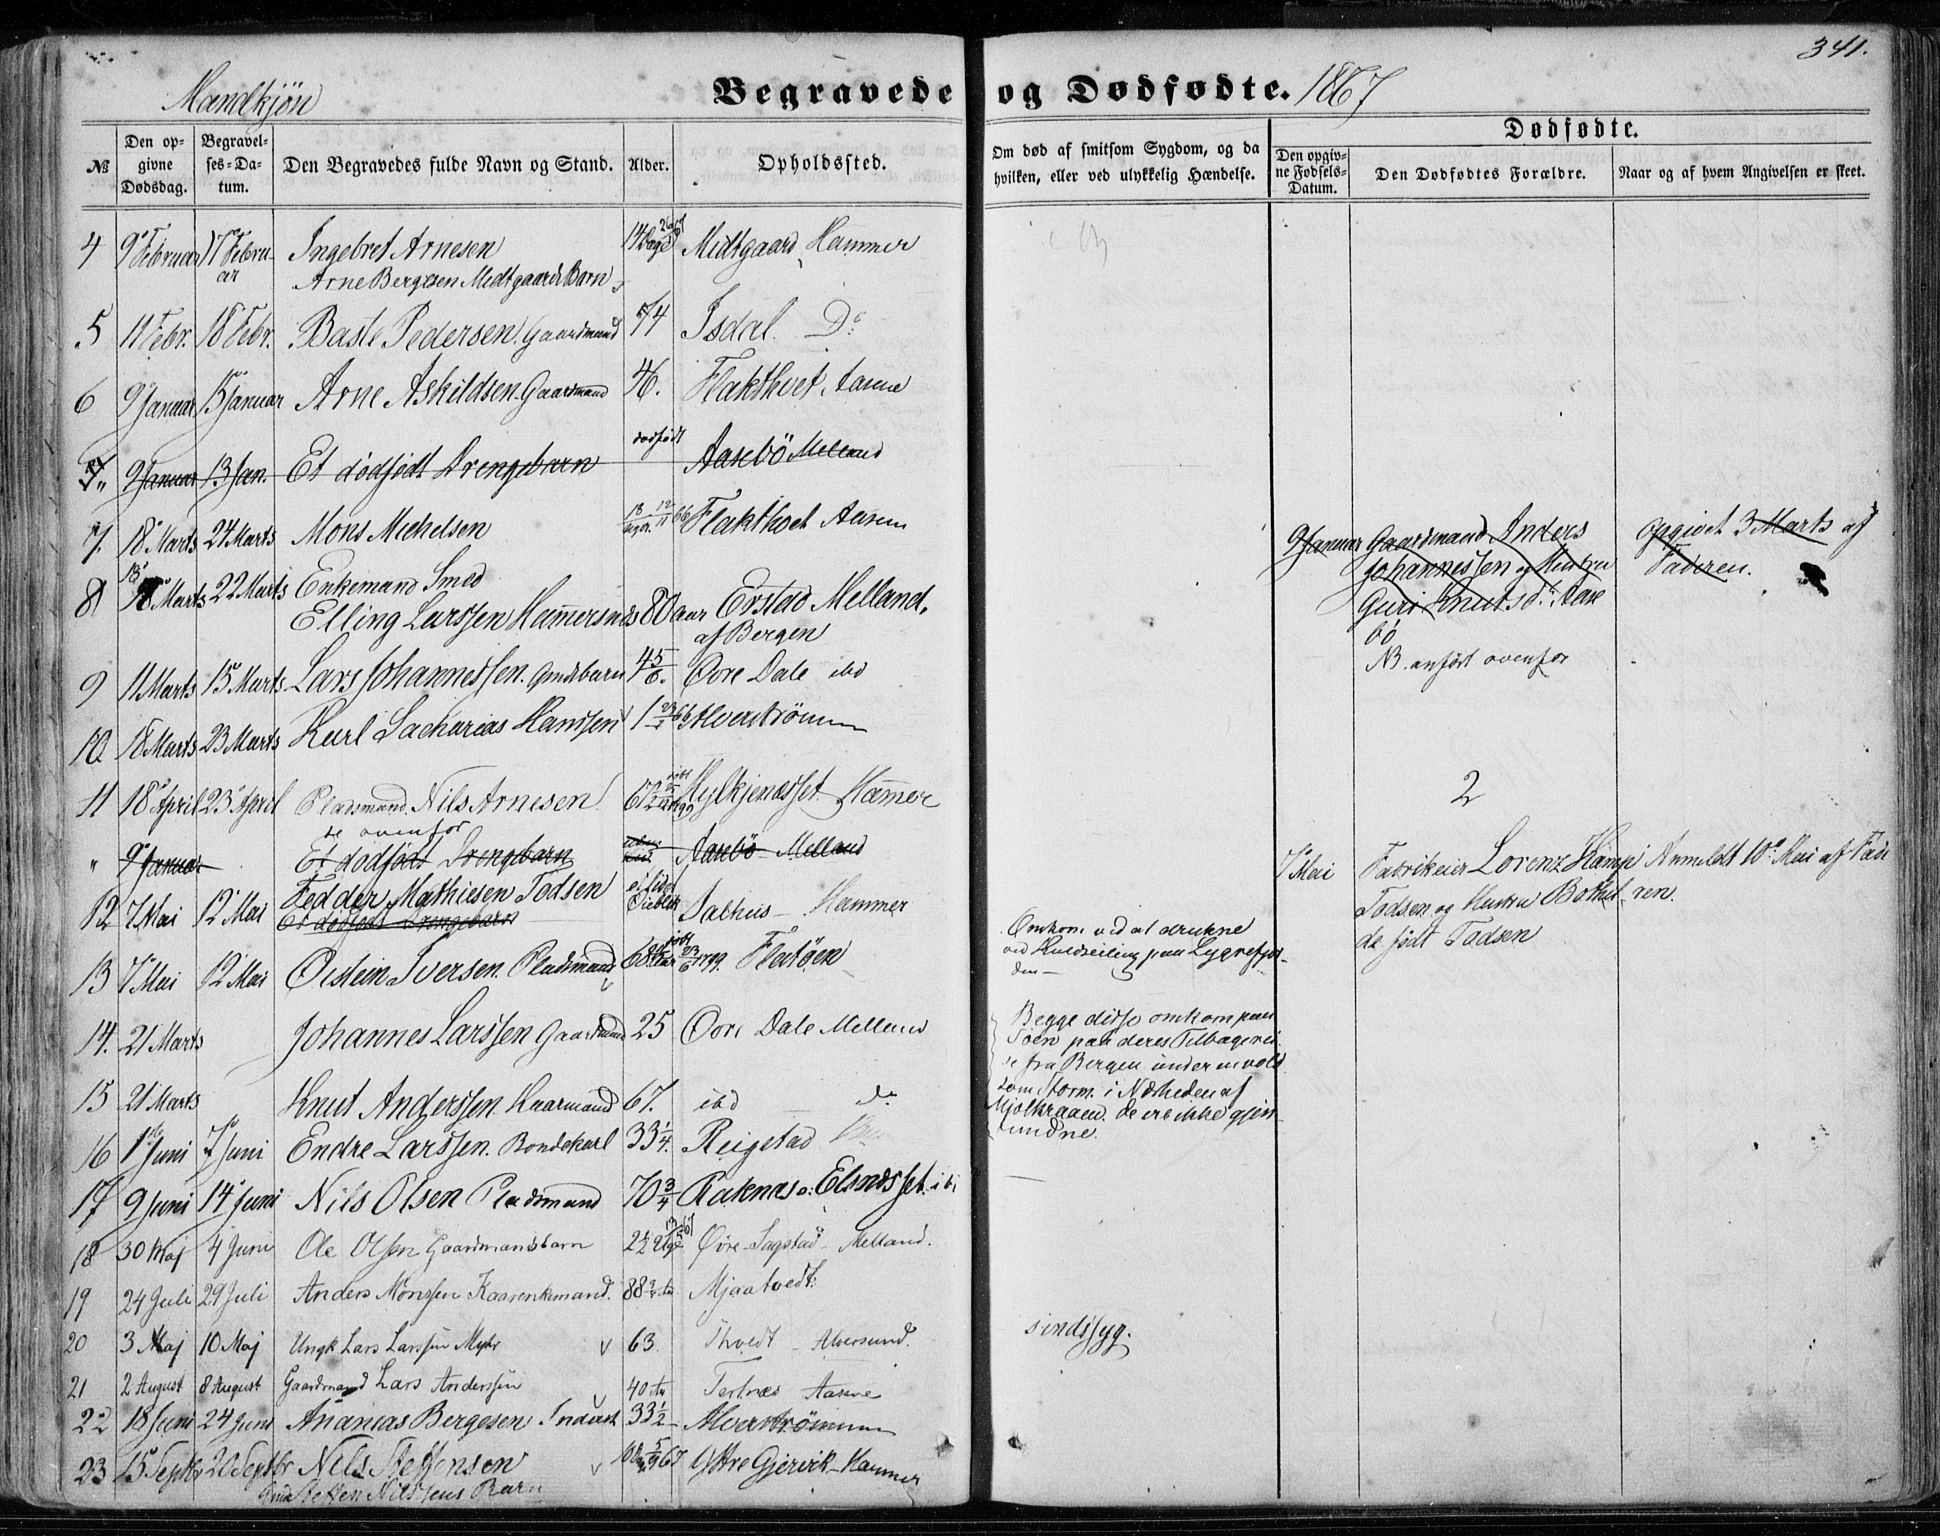 341.
Mandkjøn
Begravede og Dødfødte. 1867
№
Den opgivne Dødsdag.
Begravelses-Datum.
Den Begravedes fulde Navn og Stand.
Alder.
Opholdssted.
Om død af smitsom Sygdom, og da hvilken, eller ved ulykkelig Hændelse.
Dødfødte.
Den opgivne Fødsels-Datum.
Den Dødfødtes Forældre.
Naar og af hvem Angivelsen er skeet.
4 9 Februar 17 Februar Ingebret Arnesen 14 Dage Midtgaard Hammer
Arne Bergesen Midtgaards Barn
5 11 Febr. 18 Febr. Baste Pedersen Gaardmand 74 Isdal. Do
6 9 Januar 15 Januar Arne Askildsen Gaardmand 46. Flakthvet, Aasne
9 Januar 13 Jan. Et dødfødt Drengebarn dødfødt Aasebö Melland
7. 18 Marts 24 Marts Mons Michelsen Flakthvet Aasene
9 Januar Gaardmand Anders Opgivet 3 Marts af
Johannessen og Hustru Faderen.
Guri Knutsd. Aase
bö
NB. anført ovenfor
8 18 Marts 22 Marts Enkemand Smed
Elling Larssen Hamersnes 80 aar Erstad Melland.
af Bergen
9 11 Marts 15 Marts Lars Johannessen. Gmdbarn Övre Dale ibd
10. 18 Marts 23 Marts Karl Sacharias Hanssen 1 Alverströmmen
11 18 April 23 April Pladsmand Nils Arnesen Hylkjenæsset Hammer
se ovenfor
" 9 Januar Et dødfødt Drengebarn Aasebö Melland
2
12 7 Mai 12 Mai Fedder Mathiesen Todsen Salhus Hammer
Et dødfødt Drengebarn
7 Mai Fabrikeier Lorenz Kamp Anmeldt 10 Mai af Fade
Todsen og Hustru Bothil- ren.
de født Todsen
13 7 Mai 12 Mai Östein Iversen. Pladsmand 68 Flatöen
Omkom ved at drukne
ved Kuldseiling paa Lygrefjor-
den
14. 21 Marts Johannes Larssen Gaardmand 25 Övre Dale Melland
Begge disse omkom paa
Söen paa deres Tilbagerei
se fra Bergen under en vold
som Storm i Nærheden af
Mjölkraaen. de ere ikke gjen
fundne.
15 21 Marts Knut Anderssen Kaarmand 67. ibd do
16 1 Juni 7 Juni Endre Larssen. Bondekarl 33 1/4. Reigstad
17 9 Juni 14 Juni Nils Olsen Pladsmand 70 3/4 Raknæs Elsnæsset ibd
18 30 Maj 4 Juni Ole Olsen Gaardmandsbarn Øvre Sagstad Melland.
19 24 Juli 29 Juli Anders Monssen Kaarenkemand. 88 Mjaatvedt
20 3 Maj 10 Maj Ungk Lars Larssen 63. Thvedt Alversund.
sindssyg.
21 2 August 8 August Gaardmand Lars Anderssen 40 Aar Tertnæs Aasene
22 18 Juni 24 Juni Ananias Bergesen Inderst 33 1/2 Alverströmmen
23 15 Septbr 20 Septbr Nils Steffensen Yttre Gjervik Hammer
Gmd Steffen Nilssens Barn